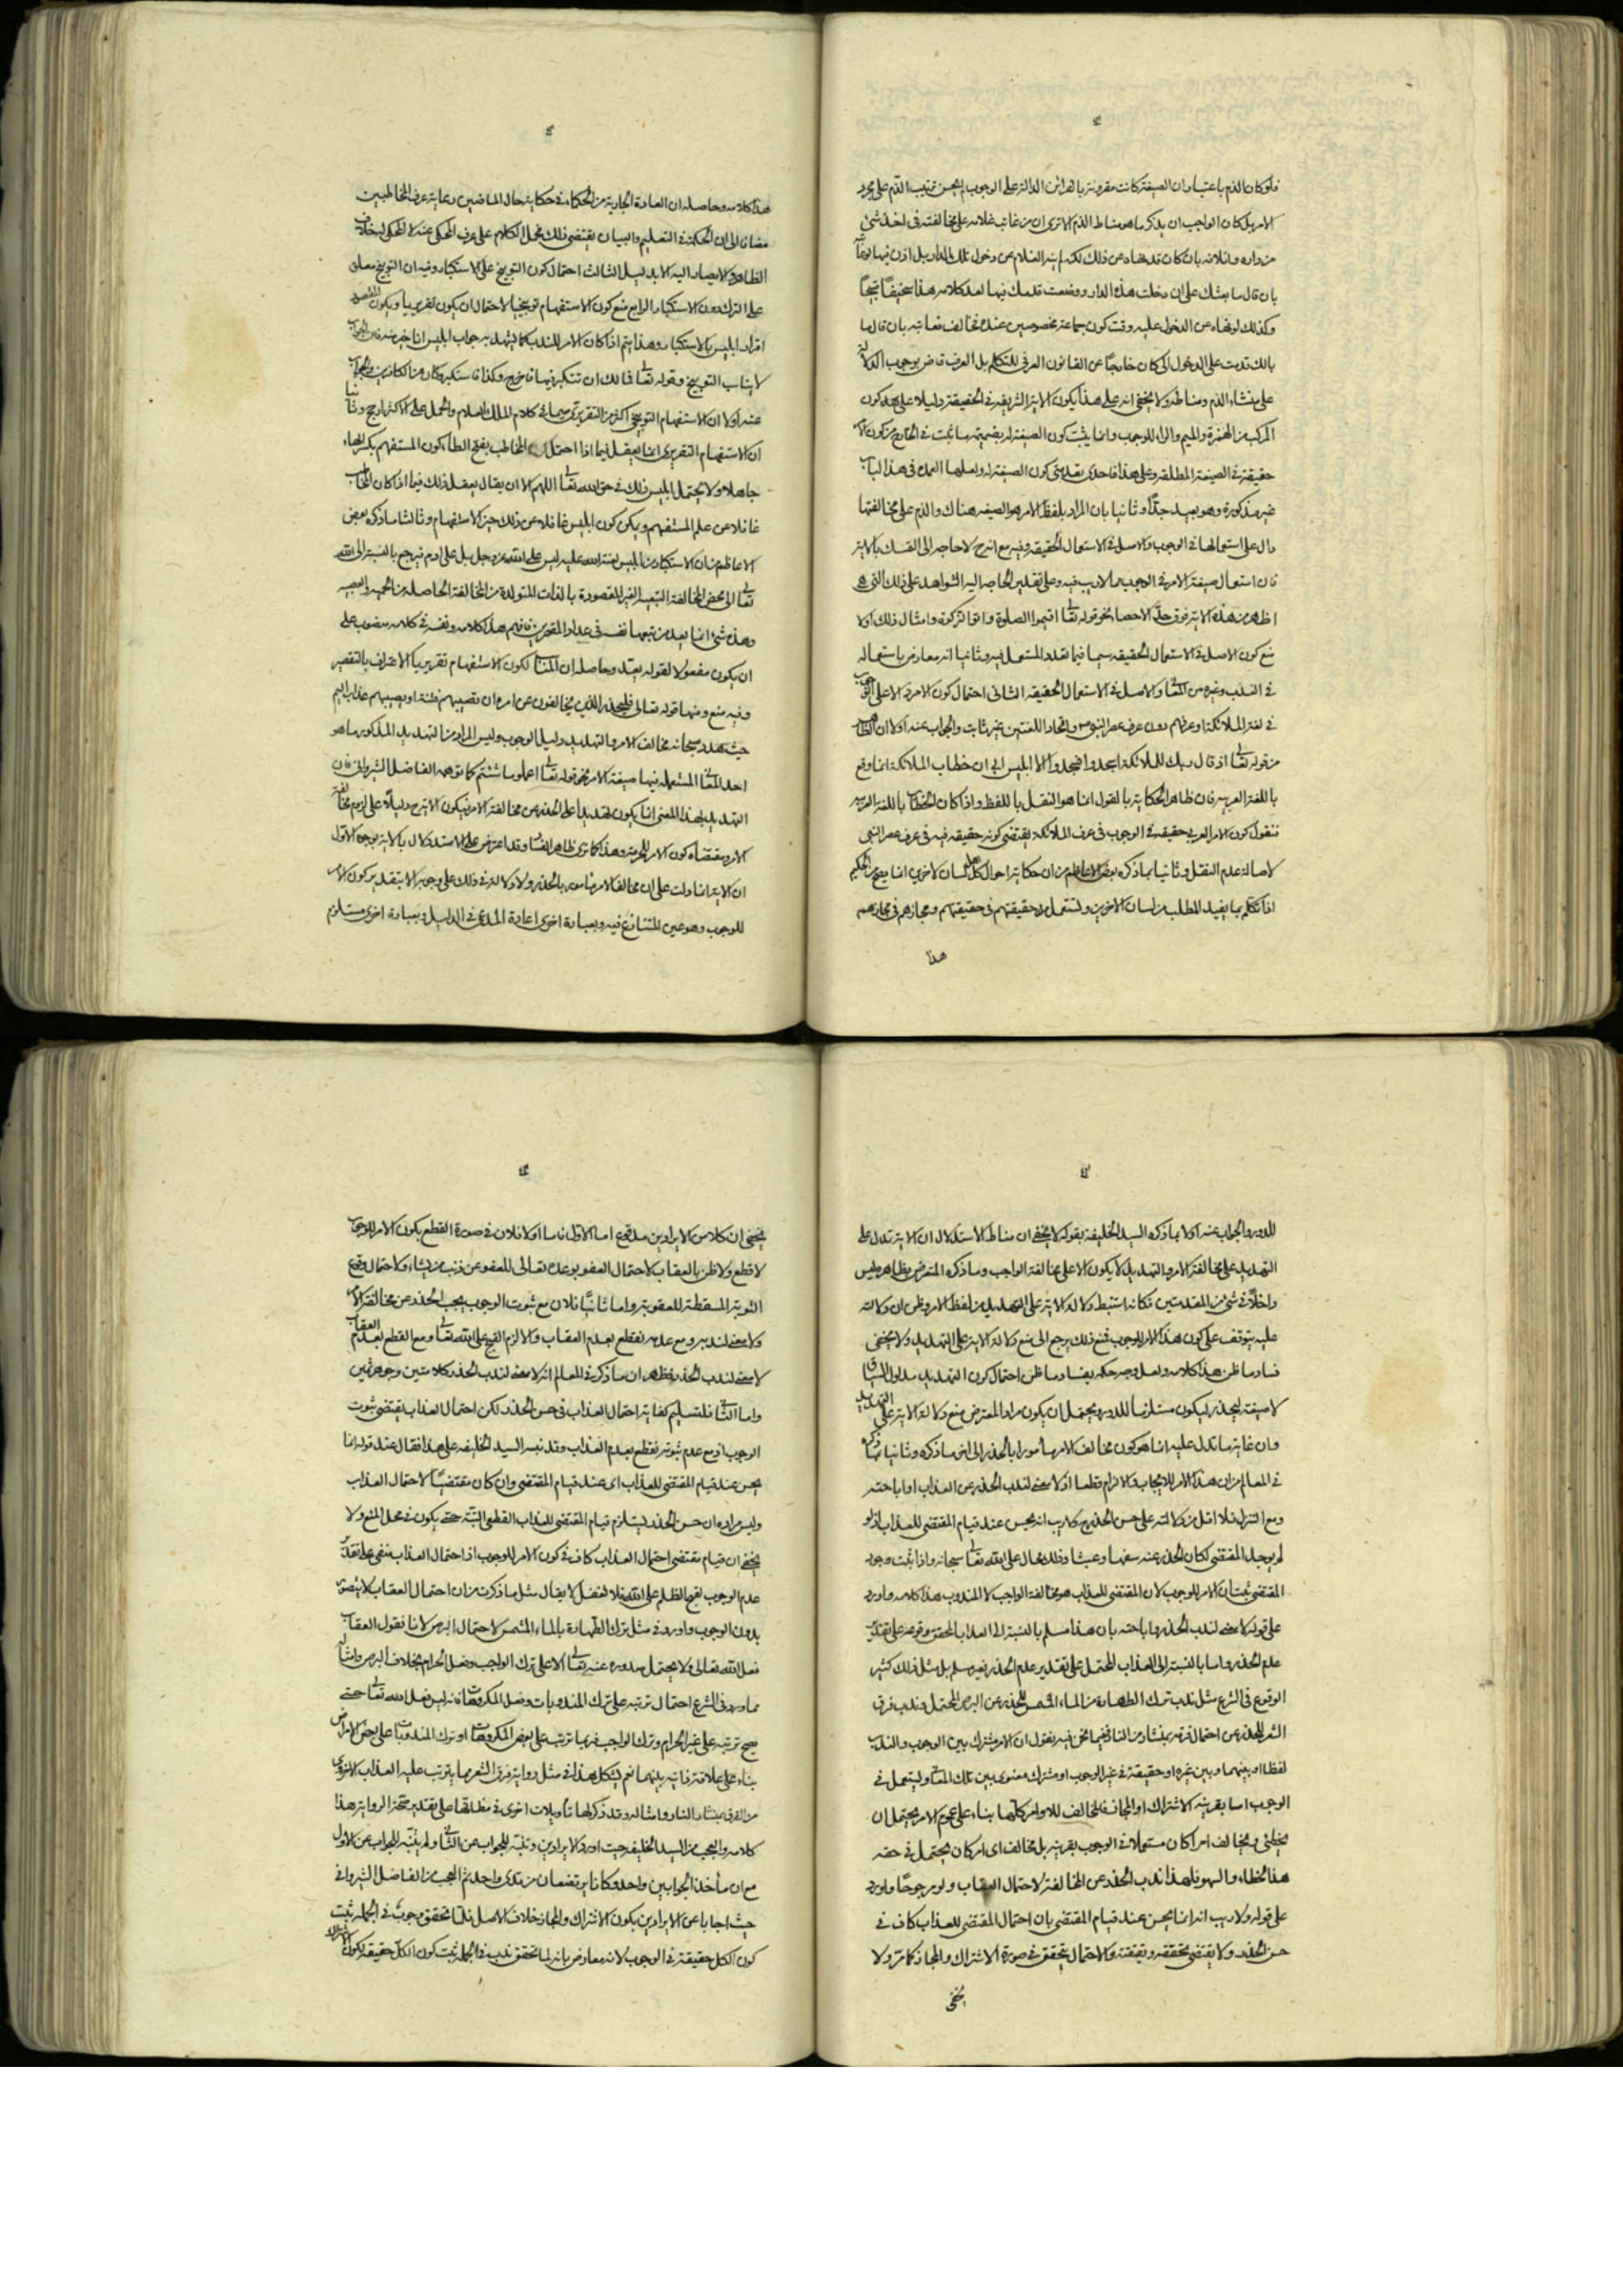 فلو كان الذم باعتبار ان الصيغة كانت مقرونة بالقرائن الدالة على الوجوب لم يحسن ترتيب الذم على مجرد
الامر بل كان الواجب ان يذكر ما هو مناط الذم الا ترى ان من عاتب غلامه على مخالفته فى اخذ شئ
من داره وانلافه بان كان قد نهاه عن ذلك لكنه لم ينه الغلام عن دخول تلك الدار بل اذن فيها
بان قال ما بعثك على ان دخلت هذه الدار ووضعت قدمك فيها لعد كلامه هذا سخيفا قبيحا
وكذلك لو نهاه عن الدخول عليه وقت كون جماعة مخصوصين عنده فخالف فعاتبه بان قال ما
بالك قدمت على الدخول الى كان خارجا عن القانون العرفى للتكلم بل العرف قاض بوجوب الدلالة
على منشاء الذم ومناطه ولا يخفى انه على هذا يكون الاية الشريفة فى الحقيقة دليلا على هذا كون
المركب من الهمزة والميم والراء للوجوب وانما يثبت كون الصيغة له بضميمة ما ثبت فى الخارج من كون الامر
حقيقة فى الصيغة المطلقة وعلى هذا فاحدى مقدمتى كون الصيغة له ولعلها العمدة فى هذا الباب
غير مذكورة وهو بعيد جدا وثانيا بان المراد بلفظ الامر هو الصيغة هناك والذم على مخالفتها
دال على استعمالها فى الوجوب والاصل فى الاستعمال الحقيقة وفيه مع انه ح لا حاجة الى التمسك بالاية
فان استعمال صيغة الامر فى الوجوب مما لا ريب فيه وعلى تقدير الحاجة اليه الشواهد على ذلك التى هى
اظهر من هذه الاية فوق حد الاحصاء نحو قوله تعالى اقيموا الصلوة واتوا الزكوة وامثال ذلك اولا
منع كون الاصل فى الاستعمال الحقيقة سيما فيما تعدد المستعمل فيه وثانيا انه معارض باستعماله
فى الندب وغيره من المعانى والاصل فى الاستعمال الحقيقة الثانى احتمال كون الامر دالا على الوجوب
فى لغة الملائكة او عرفهم دون عرف عصر النبى ص واتحاد اللغتين غير ثابت والجواب عنه اولا ان الظاهر
من قوله تعالى اذ قال ربك للملائكة اسجدوا فسجدوا الا ابليس ابى ان خطاب الملائكة انما وقع
باللغة العربية فان ظاهر الحكاية بالقول انما هو النقل باللفظ واذا كان الخطاب باللغة العربية
فنقول كون الامر العربى حقيقة فى الوجوب فى عرف الملائكة يقتضى كونه حقيقة فيه فى عرف عصر النبى
لاصالة عدم النقل وثانيا بما ذكره بعض الاعاظم من ان حكاية احوال كل اهل لسان لاخرين انما يصح من الحكيم
اذا تكلم بما يفيد المطلب من لسان الاخرين ويستعمل حقيقتهم فى حقيقتهم ومجازهم فى مجازهم
هذا
هذا كلامه وحاصله ان العادة الجارية من الحكماء فى حكاية حال الماضين رعاية عرف المخاطبين
مضافا الى ان الحكمة فى التعليم والبيان يقتضى ذلك فحمل الكلام على عرف المحكى عنه لا المحكى له خلاف
الظاهر ولا يصار اليه الا بدليل الثالث احتمال كون التوبيخ على الاستكبار وفيه ان التوبيخ معلق
على الترك دون الاستكبار الرابع منع كون الاستفهام توبيخيا لاحتمال ان يكون تقريريا ويكون المقصود
اقرار ابليس بالاستكبار وهذا يتم اذا كان الامر للندب كما يشهد به جواب ابليس انا خير منه فان الجواب
لا يناسب التوبيخ وقوله تعالى فما لك ان تتكبر فيها فاخرج وكذا فاستكبر وكان من الكافرين والجواب
عنه اولا ان الاستفهام التوبيخى اكثر من التقريرى سيما فى كلام الملك العلام والحمل على الاكثر ارجح وثانيا
ان الاستفهام التقريرى انما يعقل فيما اذا احتمل المخاطب بفتح الطاء كون المستفهم بكسر الهاء
جاهلا ولا يحتمل ابليس ذلك فى حق الله تعالى اللهم الا ان يقال يعقل ذلك فيما اذا كان المخاطب
غافلا عن علم المستفهم ويمكن كون ابليس غافلا عن ذلك حين الاستفهام وثالثا ما ذكره بعض
الاعاظم من ان الاستكبار من ابليس لعنة الله عليه ليس على الله عز وجل بل على ادم فيرجع بالنسبة الى الله
تعالى الى محض المخالفة التبعية الغير المقصودة بالذات المتولدة من المخالفة الحاصلة من الحمية والعصبية
وهذه شئ انما يعد من تبعها نفسه فى عداد المقصرين فافهم هذا كلامه ونفسه فى كلامه منصوب على
ان يكون مفعولا لقوله يعد وحاصله ان المناسب لكون الاستفهام تقريريا الاعتراف بالتقصير
وفيه منع ومنها قوله تعالى فليحذر الذين يخالفون عن امره ان تصيبهم فتنة او يصيبهم عذاب اليم
حيث هدد سبحانه مخالف الامر والتهديد دليل الوجوب وليس المراد من التهديد المذكور ما هو
احد المعانى المستعملة فيها صيغة الامر نحو قوله تعالى اعملوا ما شئتم كما توهمه الفاضل الشيروانى فان
التهديد بهذا المعنى انما يكون تهديدا على الحذر عن مخالفة الامر فيكون الاية ح دليلا على لزوم مخالفة
الامر ومقتضاه كون الامر للحرمة وهذا كما ترى ظاهر الفساد وقد اعترض على الاستدلال بالاية بوجوه الاول
ان الاية انما دلت على ان مخالف الامر مامور بالحذر ولا دلالة فى ذلك على وجوبه الا بتقدير كون الامر
للوجوب وهو عين المتنازع فيه وبعبارة اخرى اعادة المدعى فى الدليل وبعبارة اخرى مستلزم
للدور والجواب عنه اولا بما ذكره السيد الخليفة بقوله لا يخفى ان مناط الاستدلال ان الاية تدل على
التهديد على مخالفة الامر والتهديد لا يكون الا على مخالفة الواجب وما ذكره المعترض بظاهره ليس
داخلا فى شئ من المقدمتين فكانه استنبط دلالة الاية على التهديد من لفظ الامر وظن ان دلالته
عليه يتوقف على كون هذا الامر للوجوب فمنع ذلك يرجع الى منع دلالة الاية على التهديد ولا يخفى
فساد ما ظن هذا كلامه ولعل وجه حكمه بفساد ما ظن احتمال كون التهديد مدلول السياق
لا صيغة ليحذر ليكون مستلزما للدور ويحتمل ان يكون مراد المعترض منع دلالة الاية على التهديد
وان غاية ما تدل عليه انما هو كون مخالف الامر مأمورا بالحذر الى اخر ما ذكره وثانيا بما ذكره
فى المعالم من ان هذا الامر للايجاب والالزام قطعا اذ لا معنى لندب الحذر عن العذاب او اباحته
ومع التنزل فلا اقل من دلالته على حسن الحذر ح ولا ريب انه يحسن عند قيام المقتضى للعذاب اذ لو
لم يوجد المقتضى لكان الحذر عنه سفها وعبثا وذلك محال على الله تعالى سبحانه واذا ثبت وجود
المقتضى ثبت ان الامر للوجوب لان المقتضى للعذاب هو مخالفة الواجب لا المندوب هذا كلامه واورد
على قوله لا معنى لندب الحذر واباحته بان هذا مسلم بالنسبة الى العذاب المحقق وقوعه على تقدير
عدم الحذر واما بالنسبة الى العذاب المحتمل على تقدير عدم الحذر فغير مسلم بل مثل ذلك كثير
الوقوع فى الشرع مثل ندب ترك الطهارة من الماء المشمس للحذر عن البرص المحتمل وندب فرق
الشعر للحذر عن احتمال فرقه بمنشار من النار ففيما نحن فيه نقول ان الامر مشترك بين الوجوب والندب
لفظا او بينهما وبين غيره او حقيقة فى غير الوجوب او مشترك معنوى بين تلك المعانى ويستعمل فى
الوجوب اما بقرينة الاشتراك او المجاز فالمخالف للاوامر كلها بناء على عموم الامر يحتمل ان
يخطئ ويخالف امرا كان مستعملا فى الوجوب بقرينة بل مخالف اى امر كان يحتمل فى حقه
هذا الخطاء والسهو فلهذا ندب الحذر عن المخالفة لاحتمال العقاب ولو مرجوحا واورد
على قوله ولا ريب انه انما يحسن عند قيام المقتضى بان احتمال المقتضى للعذاب كاف فى
حسن الحذر ولا يقتضى تحققه وتيقنه والاحتمال يتحقق فى صورة الاشتراك والمجاز كما مر ولا
يخفى
يخفى ان كلا من الايرادين مدفوع اما الاول فاما اولا فلان فى صورة القطع بكون الامر للوجوب
لا قطع ولا ظن بالعقاب لاحتمال العفو بوعده تعالى للعفو عن ذنب من يشاء ولاحتمال وقوع
التوبة المسقطة للعقوبة واما ثانيا فلان مع ثبوت الوجوب يجب الحذر عن مخالفة الامر
ولا معنى لندبه ومع عدمه نقطع بعدم العقاب والا لزم القبيح على الله تعالى ومع القطع بعدم العقاب
لا معنى لندب الحذر فظهر ان ما ذكر فى المعالم انه لا معنى لندب الحذر كلام متين وجوهر ثمين
واما الثانى فلتسليم كفاية احتمال العذاب فى حسن الحذر لكن احتمال العذاب يقتضى ثبوت
الوجوب اذ مع عدم ثبوته نقطع بعدم العذاب وقد نبه السيد الخليفة على هذا فقال عند قوله انما
يحسن عند قيام المقتضى للعذاب اى عند قيام المقتضى وان كان مقتضيا لاحتمال العذاب
وليس مراده ان حسن الحذر يستلزم قيام المقتضى للعذاب القطعى البتة حتى يكون فى محل المنع ولا
يخفى ان قيام مقتضى احتمال العذاب كاف فى كون الامر للوجوب اذ احتمال العذاب منفى على تقدير
عدم الوجوب لقبح الظلم على الله فلا تغفل لا يقال مثل ما ذكرت من ان احتمال العقاب لا يتصور
بدون الوجوب وارد فى مثل ترك الطهارة بالماء المشمس لاحتمال البرص لانا نقول العقاب
فعل الله تعالى ولا يحتمل صدوره عنه تعالى الا على ترك الواجب وفعل الحرام بخلاف البرص وامثاله
مما ورد فى الشرع احتمال ترتبه على ترك المندوبات وفعل المكروهات فانه ليس فعل الله تعالى حتى
يصح ترتبه على غير الحرام وترك الواجب فربما ترتبه على بعض المكروهات او ترك المندوبات على بعض الامراض
بناء على علاقة ذاتية بينهما نعم يشكل هذا فى مثل رواية فرق الشعر مما يترتب عليه العذاب الاخروى
من الفرق بمنشار النار وامثاله وقد ذكر لها تأويلات اخرى فى مظانها على تقدير صحة الرواية هذا
كلامه والعجب من السيد الخليفة حيث اورد الايرادين وتنبه للجواب عن الثانى ولم يتنبه للجواب عن الاول
مع ان مأخذ الجوابين واحد وكانا يرتضعان من ثدى واحد ثم العجب من الفاضل الشيروانى
حيث اجاب عن الايرادين بكون الاشتراك والمجاز خلاف الاصل فلما تحقق وجوب فى الجملة ثبت
كون الكل حقيقة فى الوجوب لانه معارض بانه لما تحقق ندب فى الجملة ثبت كون الكل حقيقة لكون